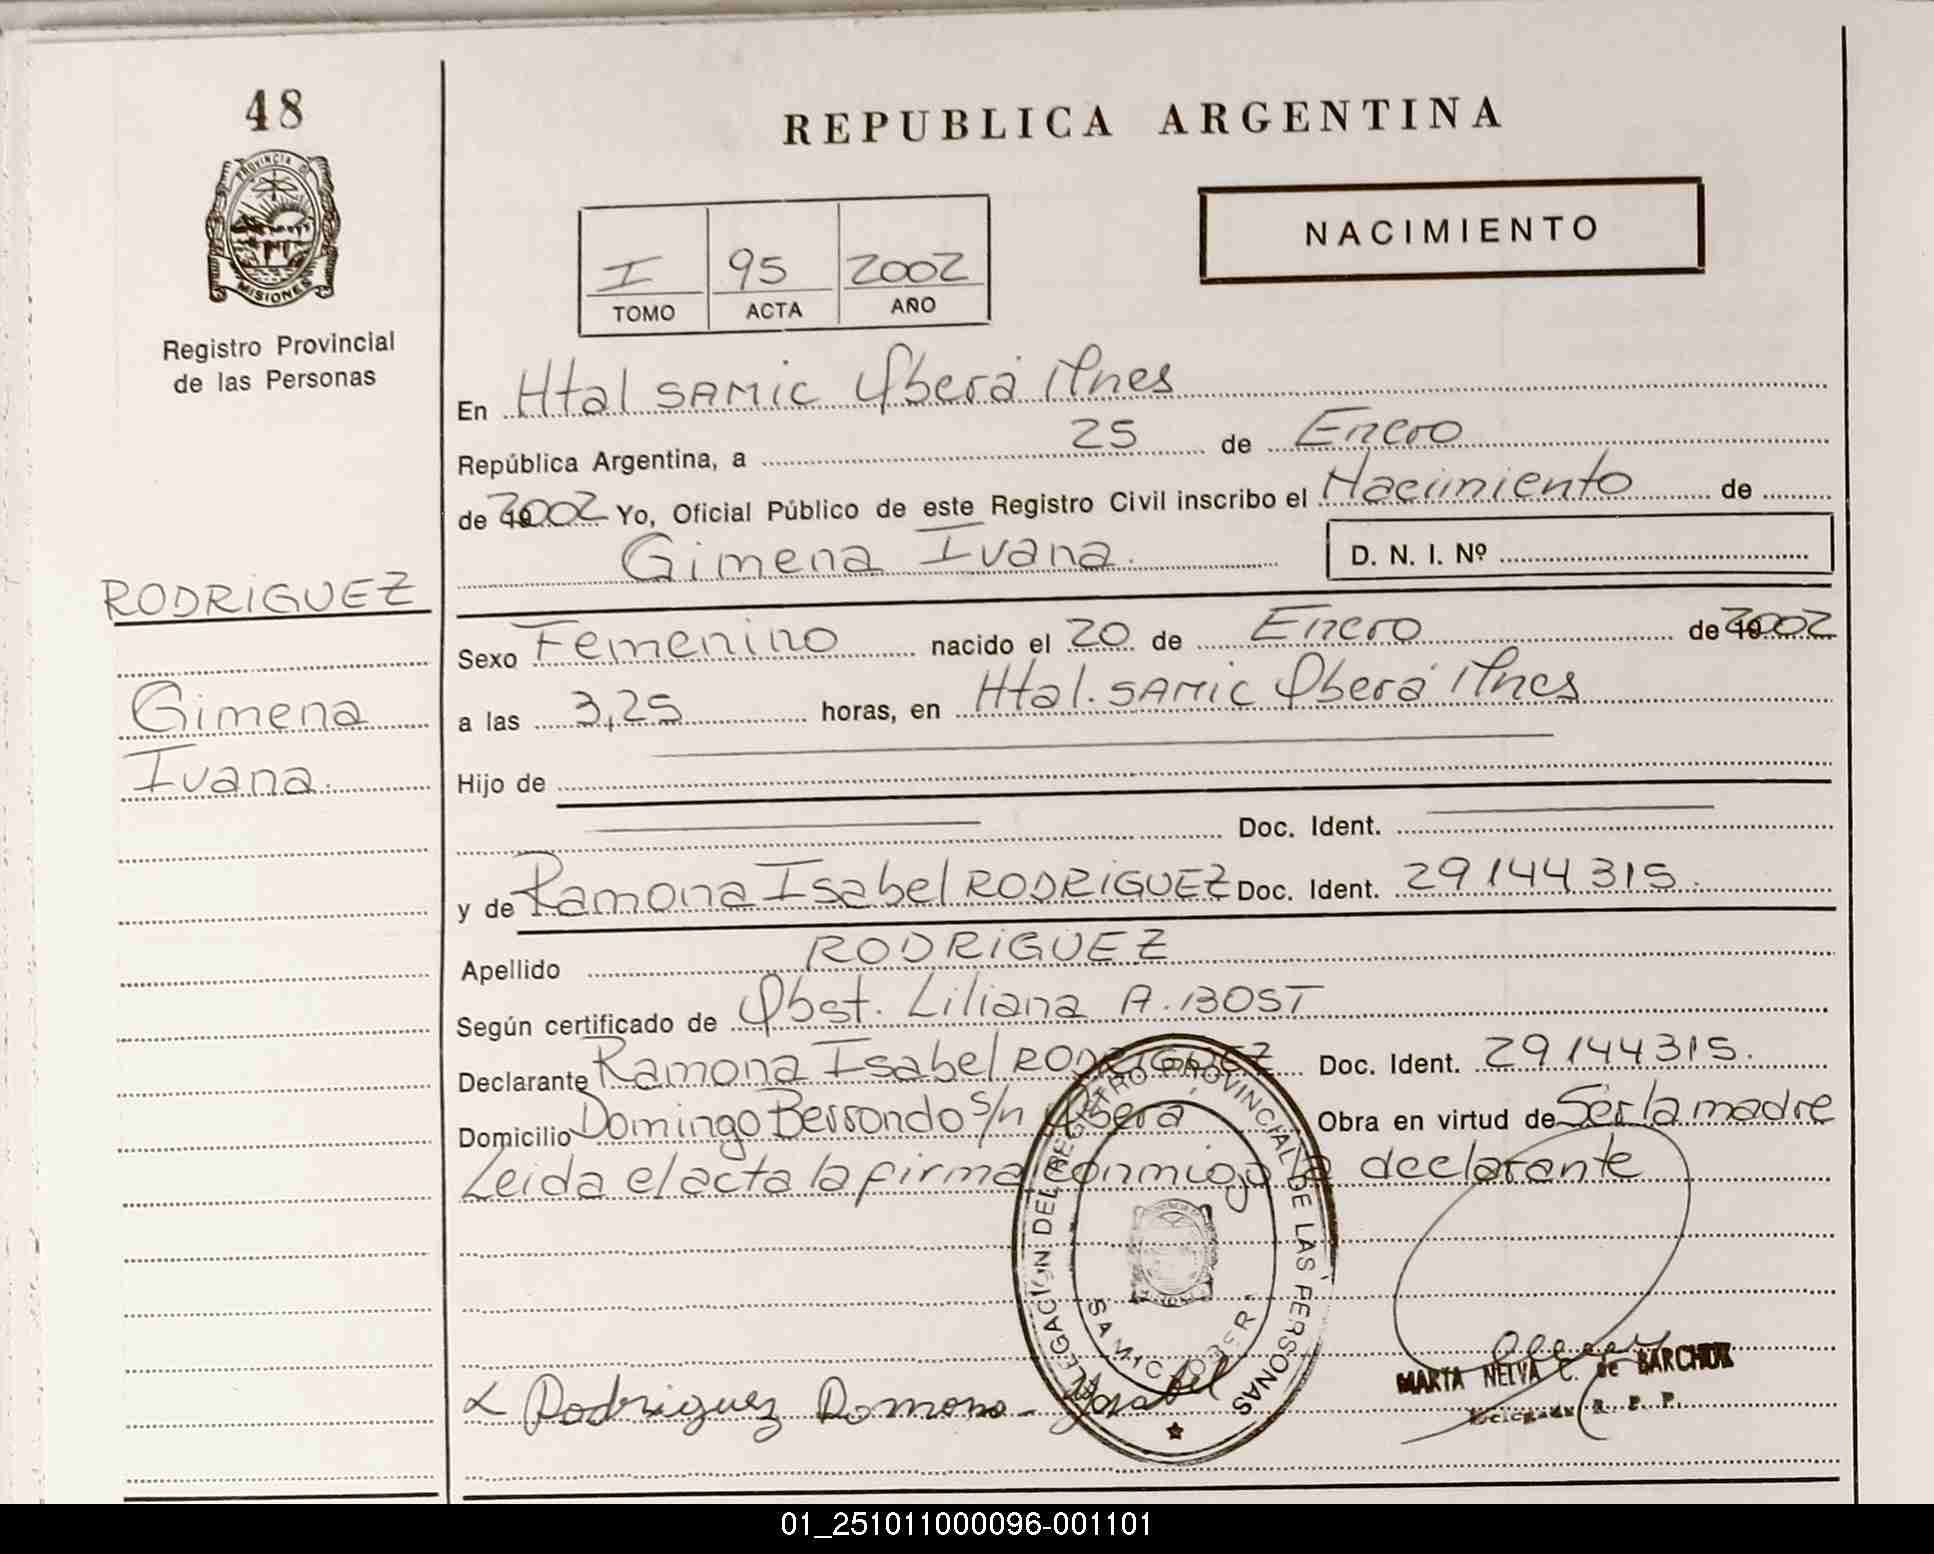 48
PROVINCIA D
MISIONES
Registro Provincial
de las Personas
RODRIGUEZ
Gimena
Ivana.
REPUBLICA ARGENTINA
NACIMIENTO
I 95 2002
TOMO ACTA AÑO
En Htal SAMIC Oberá Mnes
República Argentina, a 25 de Enero
de 2002 Yo, Oficial Público de este Registro Civil inscribo el Nacimiento de
Gimena Ivana. D. N. I. Nº
Sexo Femenino nacido el 20 de Enero de 2002
a las 3,25 horas, en Htal. SAMIC Oberá Mnes
Hijo de
Doc. Ident.
y de Ramona Isabel RODRIGUEZ Doc. Ident. 29144315.
Apellido RODRIGUEZ
Según certificado de Obst. Liliana A. BOST
Declarante Ramona Isabel RODRIGUEZ Doc. Ident. 29144315.
Domicilio Domingo Berrondo s/n Oberá Obra en virtud de Ser la madre
Leida el acta la firma conmigo la declarante
DELEGACION DEL REGISTRO PROVINCIAL DE LAS PERSONAS
SAMIC OBERA
Rodriguez Ramona Ysabel
MARTA NELVA C. de BARCHUK
Delegada R. P. P.
01_251011000096-001101